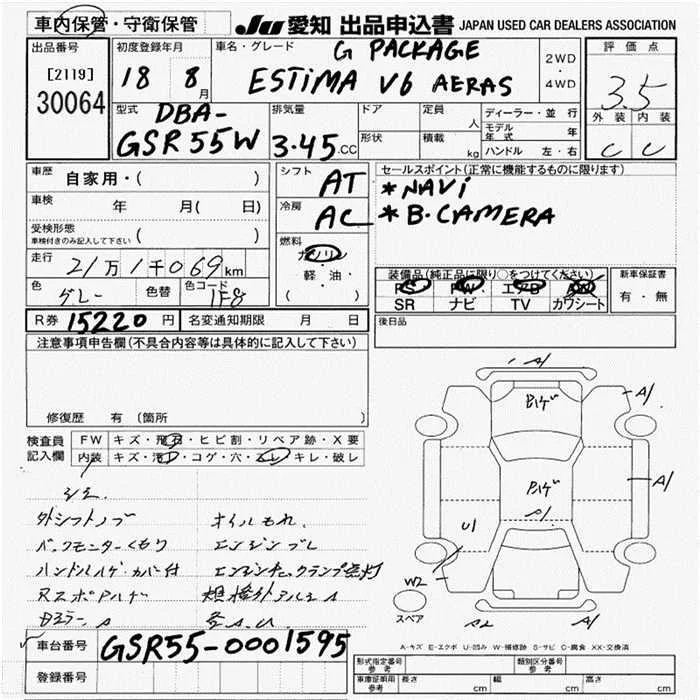 車内保管・守衛保管
JU 愛知 出品申込書 JAPAN USED CAR DEALERS ASSOCIATION
出品番号
[2119]
30064
初度登録年月
18 8月
車名・グレード
G PACKAGE
ESTIMA V6 AERAS
2WD
・
4WD
評価点
3.5
外装 内装
C C
型式
DBA-
GSR55W
排気量
3.45.CC
ドア
形状
定員
人
積載
kg
ディーラー・並行
モデル年式 年
ハンドル 左・右
車歴 自家用・( )
車検 年 月( 日)
受検形態
車検付きのみ記入して下さい ( )
走行 21万1千069km
色 グレー 色替 色コード 1F8
シフト AT
冷房 AC
燃料
ガソリン
・軽・油・
( )
セールスポイント(正常に機能するものに限ります)
*NAVi
*B.CAMERA
装備品(純正品に限り○をつけてください)
PS PW エアB AW
SR ナビ TV カワシート
新車保証書
有・無
R券 15220 円
名変通知期限 月 日
後日品
注意事項申告欄(不具合内容等は具体的に記入して下さい)
修復歴 有 (箇所 )
検査員
記入欄
FW キズ・飛石・ヒビ割・リペア跡・X要
内装 キズ・汚レ・コゲ・穴・スレ・キレ・破レ
外シフトノブ オイルもれ
バックモニターくもり エンジンブレ
ハンドルハゲ・カバー付 エンジンチェックランプ点灯
RスポアハゲA
Dミラー A 各A.U
A1
A1
ハゲ
ハゲ
A1
A1
U1
W2
スペア
A2
A1
A-キズ E-エクボ U-凹み W-補修跡 S-サビ C-腐食 XX-交換済
車台番号 GSR55-0001595
登録番号
形式指定番号
参考
類別区分番号
参考
車庫証明用
参考
長さ cm 幅 cm 高さ cm